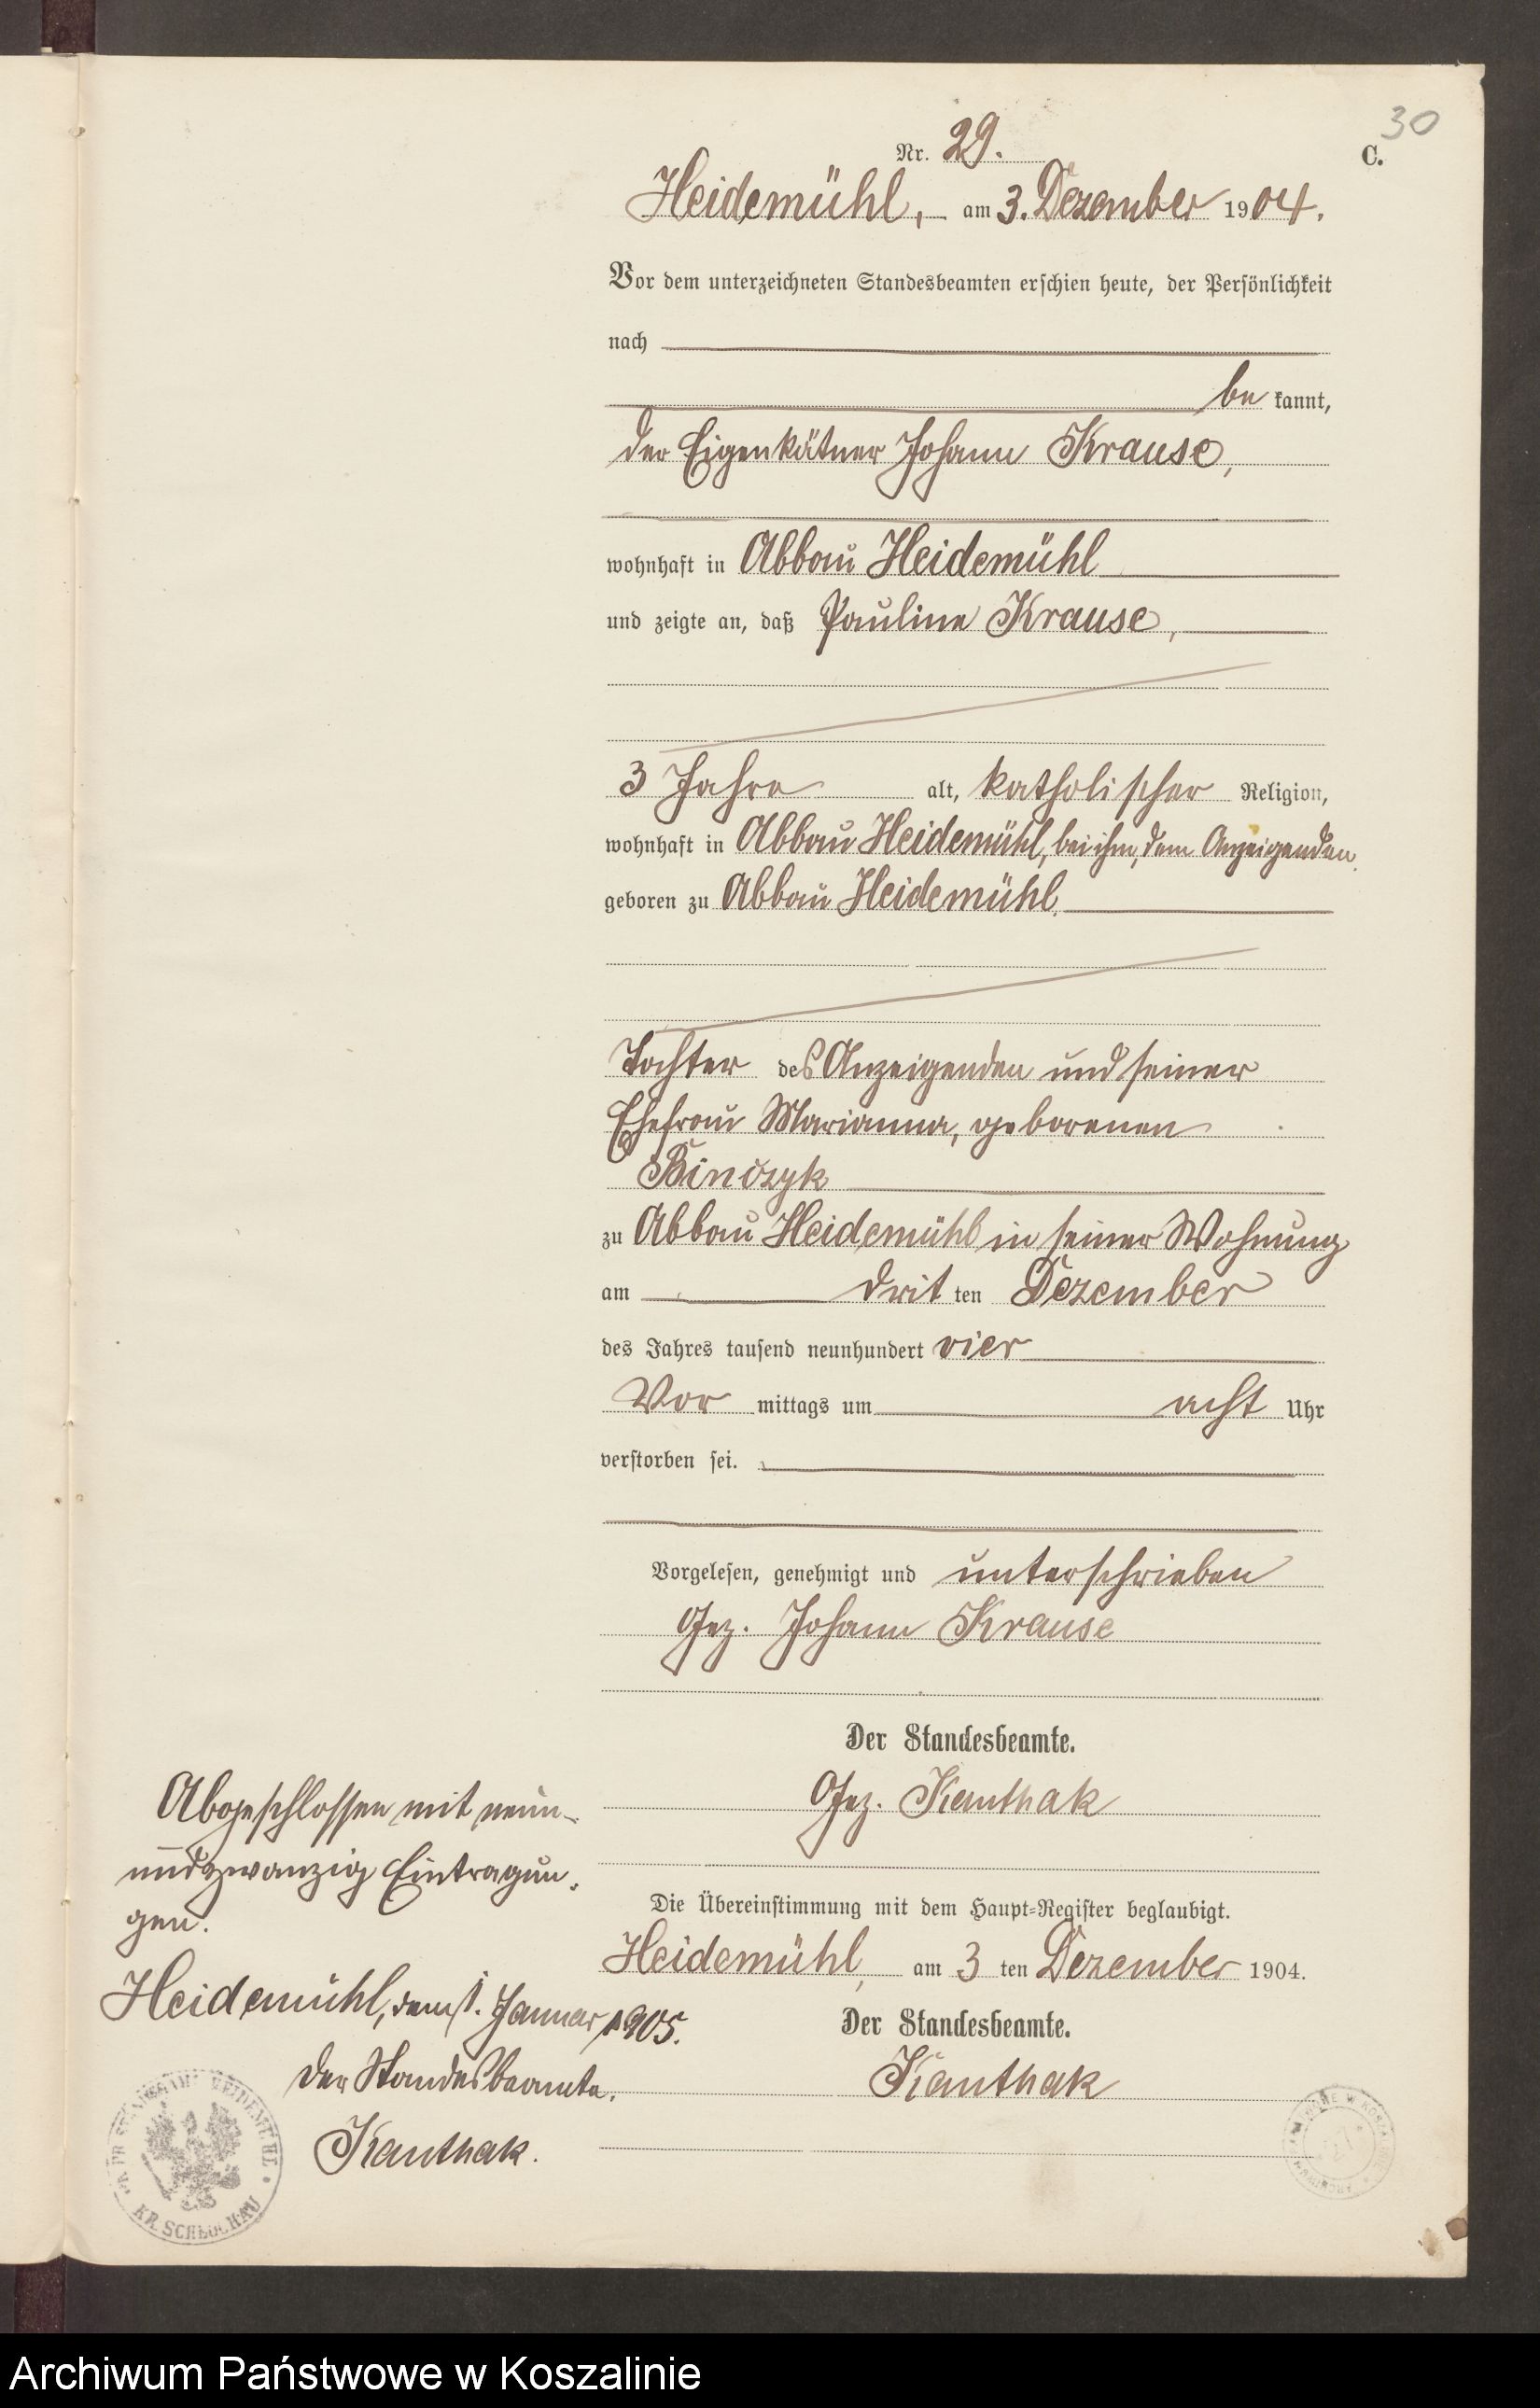 30
Nr. 29.
C.
Heidemühl, am 3. Dezember 1904.
Vor dem unterzeichneten Standesbeamten erschien heute, der Persönlichkeit
nach
be kannt,
der Eigenkätner Johann Krause,
wohnhaft in Abbau Heidemühl
und zeigte an, daß Pauline Krause,
3 Jahre alt, katholischer Religion,
wohnhaft in Abbau Heidemühl, bei ihm, dem Anzeigenden.
geboren zu Abbau Heidemühl,
Tochter des Anzeigenden und seiner
Ehefrau Marianna, geborenen
Binczyk
zu Abbau Heidemühl in seiner Wohnung
am drit ten Dezember
des Jahres tausend neunhundert vier
Vor mittags um acht Uhr
verstorben sei.
Vorgelesen, genehmigt und unterschrieben
Gez. Johann Krause
Der Standesbeamte.
Gez. Kauthak
Die Übereinstimmung mit dem Haupt-Register beglaubigt.
Heidemühl, am 3 ten Dezember 1904.
Der Standesbeamte.
Kauthak
Abgeschlossen mit neun-
undzwanzig Eintragun-
gen.
Heidemühl, den 1. Januar 1905.
Der Standesbeamte.
Kauthak.
KR. SCHLOCHAU
Archiwum Państwowe w Koszalinie